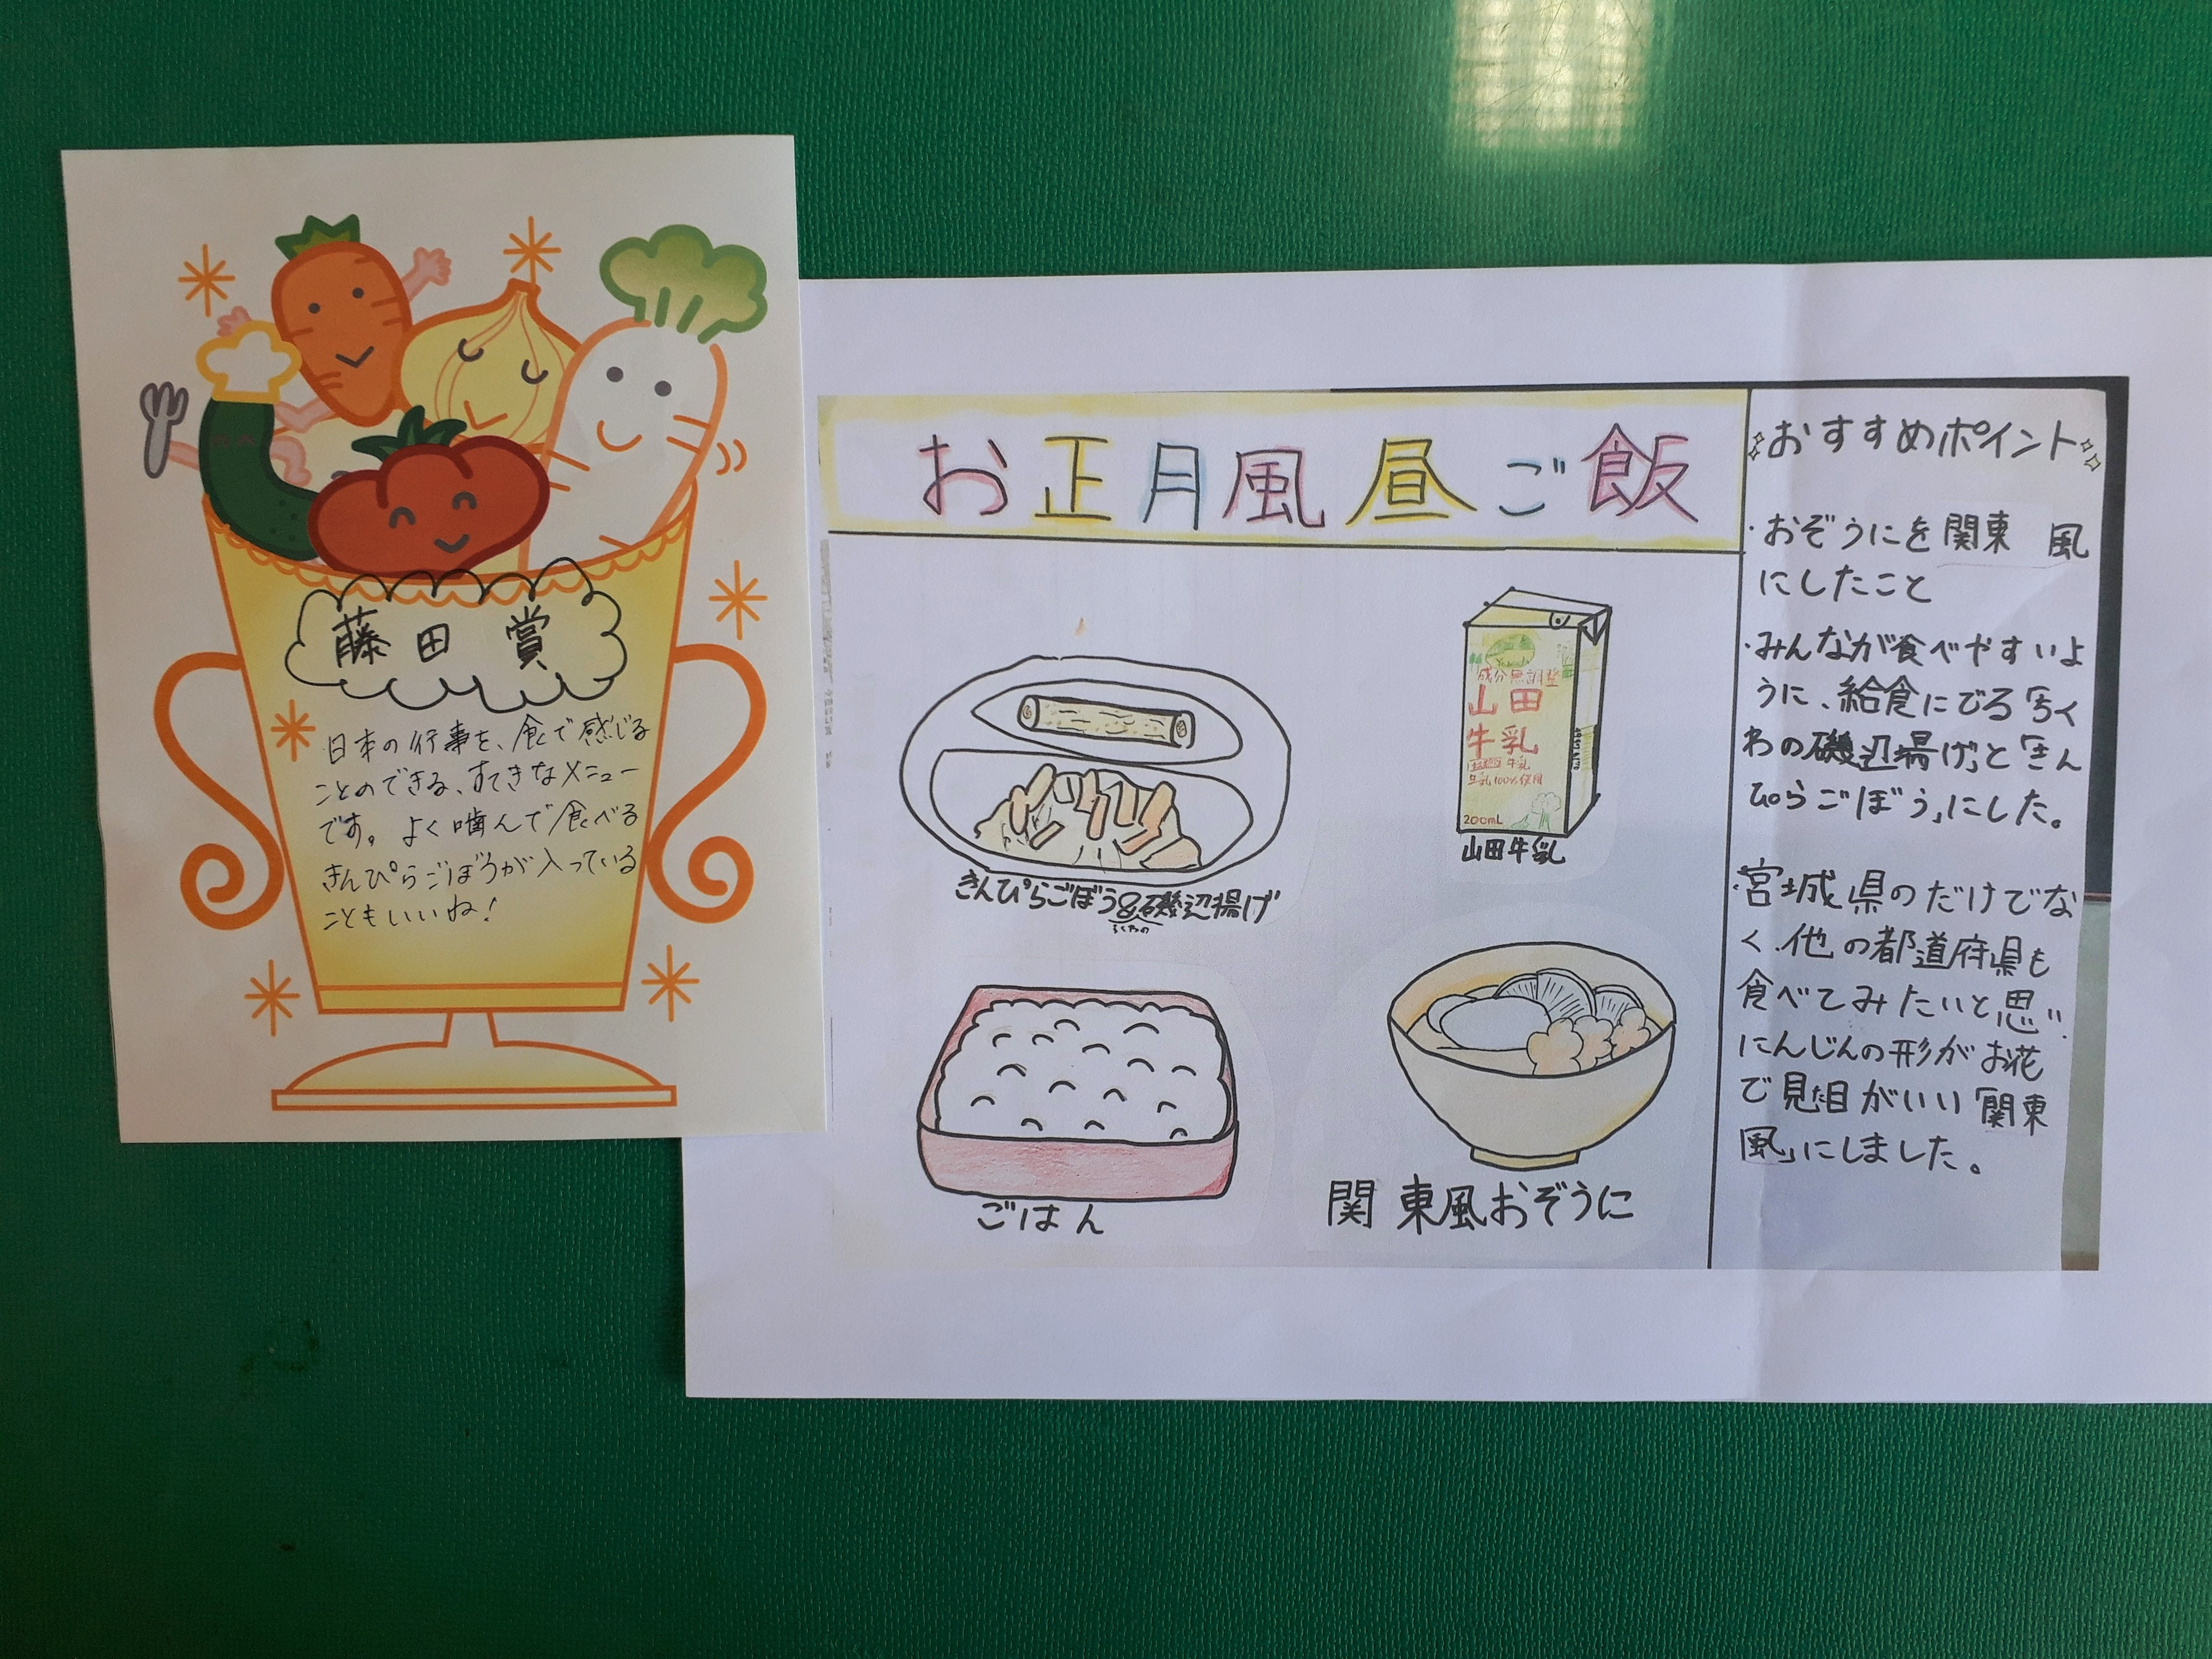 藤田賞
日本の行事を、食で感じる
ことのできる、すてきなメニュー
です。よく噛んで食べる
きんぴらごぼうが入っている
こともいいね!
お正月風昼ご飯
きんぴらごぼう&磯辺揚げ
ちくわの
成分無調整
山田
牛乳
牛乳
生乳100%使用
200mL
山田牛乳
ごはん
関東風おぞうに
おすすめポイント
・おぞうにを関東風
にしたこと
・みんなが食べやすいよ
うに、給食にでる「ちく
わの磯辺揚げ」と「きん
ぴらごぼう」にした。
・宮城県のだけでな
く、他の都道府県も
食べてみたいと思い、
にんじんの形がお花
で見た目がいい「関東
風」にしました。